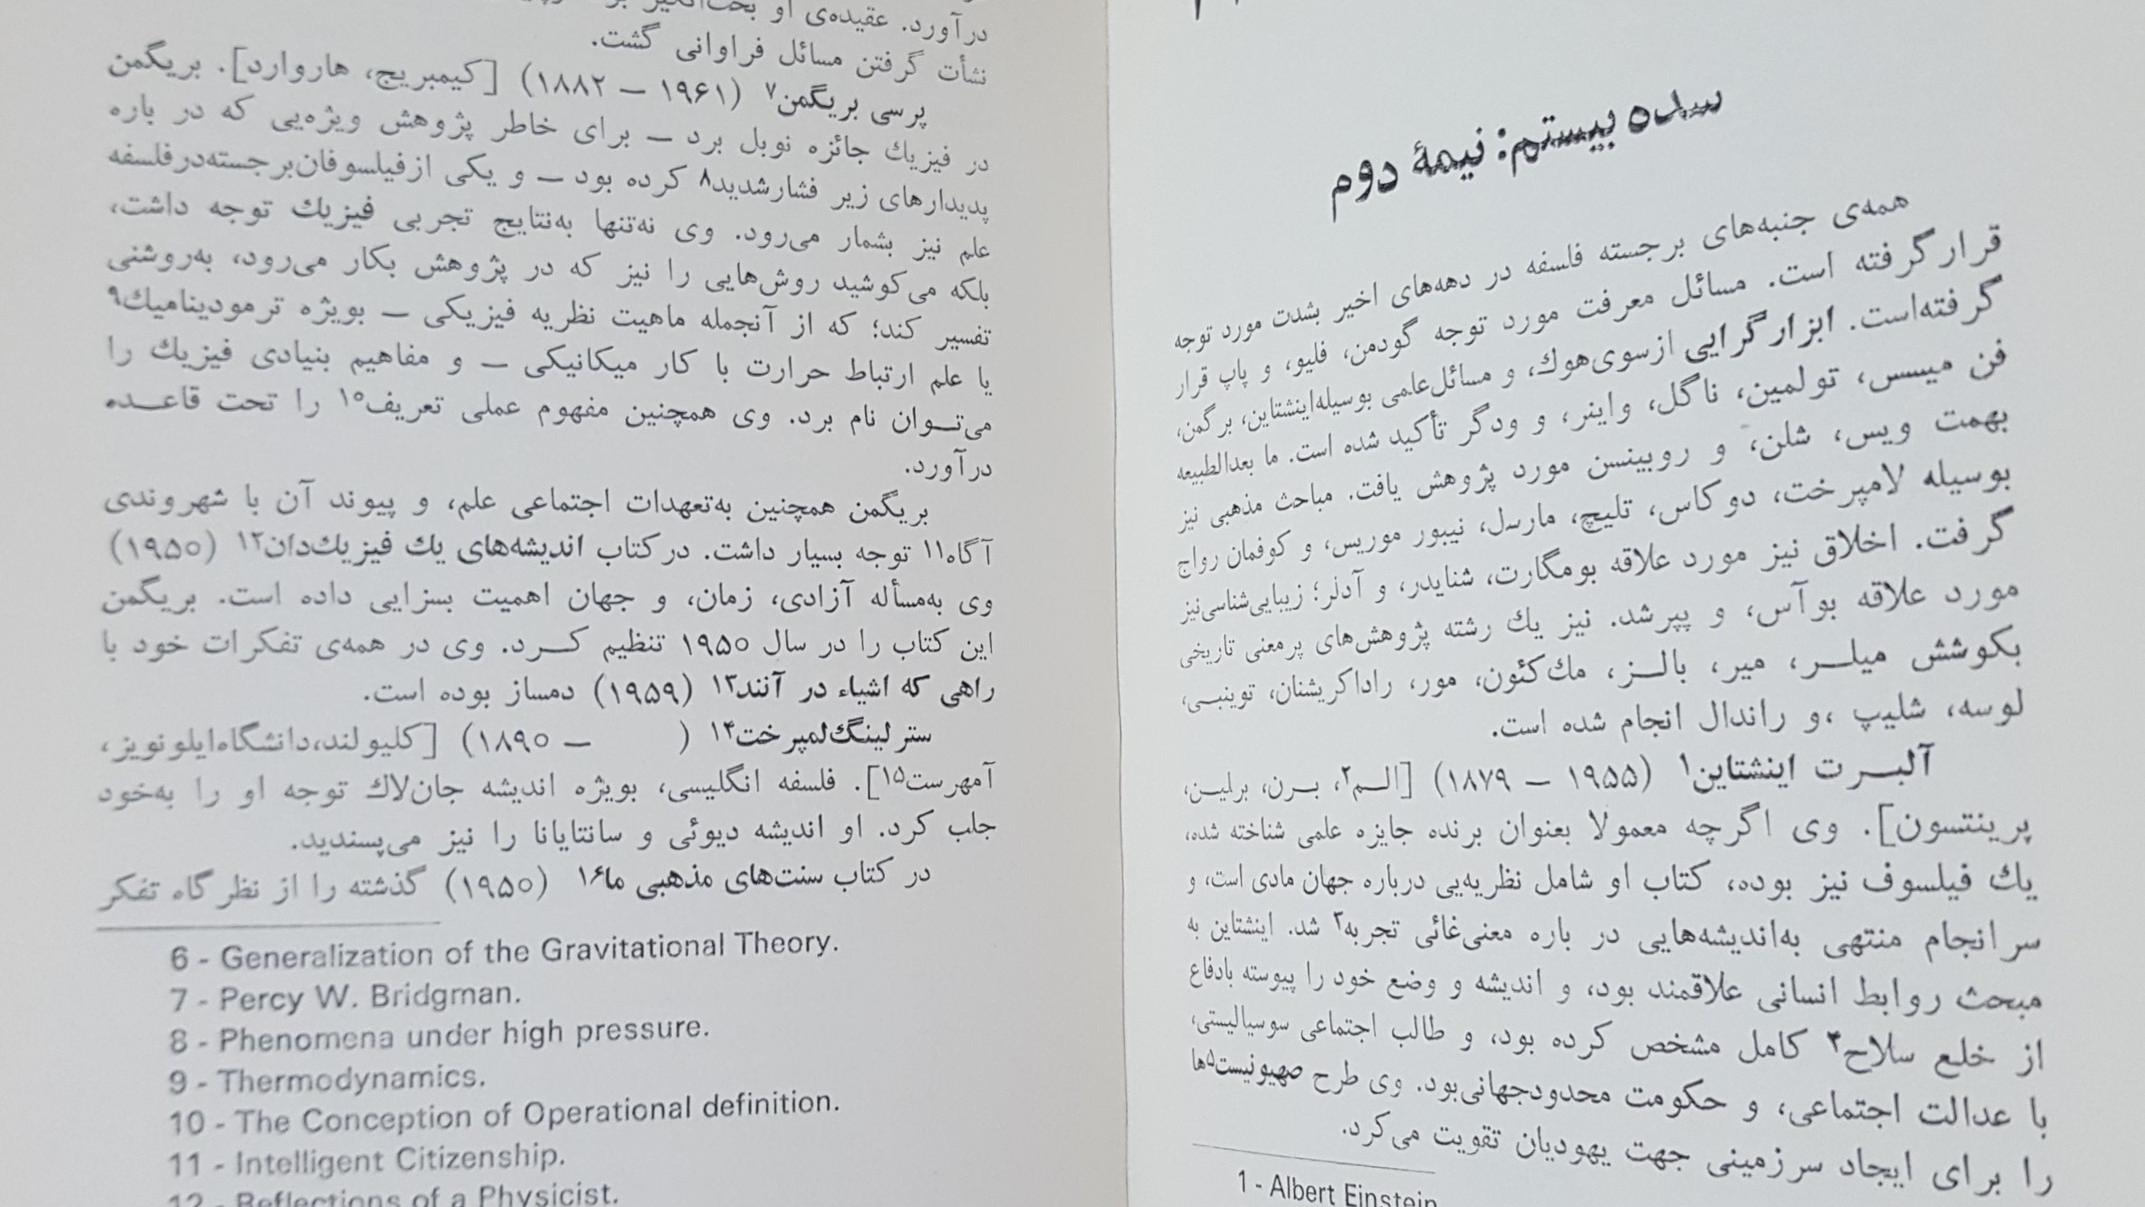 سده بیستم: نیمهٔ دوم
همه‌ی جنبه‌های برجسته فلسفه در دهه‌های اخیر بشدت مورد توجه
قرارگرفته است. مسائل معرفت مورد توجه گودمن، فلیو، و پاپ قرار
گرفته‌است. ابزارگرایی ازسوی‌هوك، و مسائل‌علمی بوسیله‌اینشتاین، برگمن،
فن میسس، تولمین، ناگل، واینر، و ودگر تأکید شده است. ما بعدالطبیعه
بهمت ویس، شلن، و روبینسن مورد پژوهش یافت. مباحث مذهبی نیز
بوسیله لامپرخت، دوکاس، تلیچ، مارسل، نیبور موریس، و کوفمان رواج
گرفت. اخلاق نیز مورد علاقه بومگارت، شنایدر، و آدلر؛ زیبایی‌شناسی‌نیز
مورد علاقه بوآس، و پپرشد. نیز یك رشته پژوهش‌های پرمعنی تاریخی
بکوشش میلــر، میر، بالــز، مك‌کئون، مور، راداکریشنان، توینبــی،
لوسه، شلیپ ،و راندال انجام شده است.
آلبــرت اینشتاین۱ (۱۹۵۵ – ۱۸۷۹) [الــم۲، بــرن، برلیــن،
پرینتسون]. وی اگرچه معمولا بعنوان برنده جایزه علمی شناخته شده،
یك فیلسوف نیز بوده، کتاب او شامل نظریه‌یی درباره جهان مادی است، و
سرانجام منتهی به‌اندیشه‌هایی در باره معنی‌غائی تجربه۳ شد. اینشتاین به
مبحث روابط انسانی علاقمند بود، و اندیشه و وضع خود را پیوسته بادفاع
از خلع سلاح۴ کامل مشخص کرده بود، و طالب اجتماعی سوسیالیستی،
با عدالت اجتماعی، و حکومت محدودجهانی‌بود. وی طرح صهیونیست۵ها
را برای ایجاد سرزمینی جهت یهودیان تقویت می‌کرد.
1 - Albert Einstein
درآورد. عقیده‌ی او
نشأت گرفتن مسائل فراوانی گشت.
پرسی بریگمن۷ (۱۹۶۱ – ۱۸۸۲) [کیمبریج، هاروارد]. بریگمن
در فیزیك جائزه نوبل برد – برای خاطر پژوهش ویژه‌یی که در باره
پدیدارهای زیر فشارشدید۸ کرده بود – و یکی ازفیلسوفان‌برجسته‌درفلسفه
علم نیز بشمار می‌رود. وی نه‌تنها به‌نتایج تجربی فیزیك توجه داشت،
بلکه می‌کوشید روش‌هایی را نیز که در پژوهش بکار می‌رود، به‌روشنی
تفسیر کند؛ که از آنجمله ماهیت نظریه فیزیکی – بویژه ترمودینامیك۹
یا علم ارتباط حرارت با کار میکانیکی – و مفاهیم بنیادی فیزیك را
می‌تــوان نام برد. وی همچنین مفهوم عملی تعریف۱۰ را تحت قاعــده
درآورد.
بریگمن همچنین به‌تعهدات اجتماعی علم، و پیوند آن با شهروندی
آگاه۱۱ توجه بسیار داشت. درکتاب اندیشه‌های یك فیزیك‌دان۱۲ (۱۹۵۰)
وی به‌مسأله آزادی، زمان، و جهان اهمیت بسزایی داده است. بریگمن
این کتاب را در سال ۱۹۵۰ تنظیم کــرد. وی در همه‌ی تفکرات خود با
راهی که اشیاء در آنند۱۳ (۱۹۵۹) دمساز بوده است.
سترلینگ‌لمپرخت۱۴ (     – ۱۸۹۰) [کلیولند،دانشگاه‌ایلونویز،
آمهرست۱۵]. فلسفه انگلیسی، بویژه اندیشه جان‌لاك توجه او را به‌خود
جلب کرد. او اندیشه دیوئی و سانتایانا را نیز می‌پسندید.
در کتاب سنت‌های مذهبی ما۱۶ (۱۹۵۰) گذشته را از نظرگاه تفکر
6 - Generalization of the Gravitational Theory.
7 - Percy W. Bridgman.
8 - Phenomena under high pressure.
9 - Thermodynamics.
10 - The Conception of Operational definition.
11 - Intelligent Citizenship.
12 - Reflections of a Physicist.